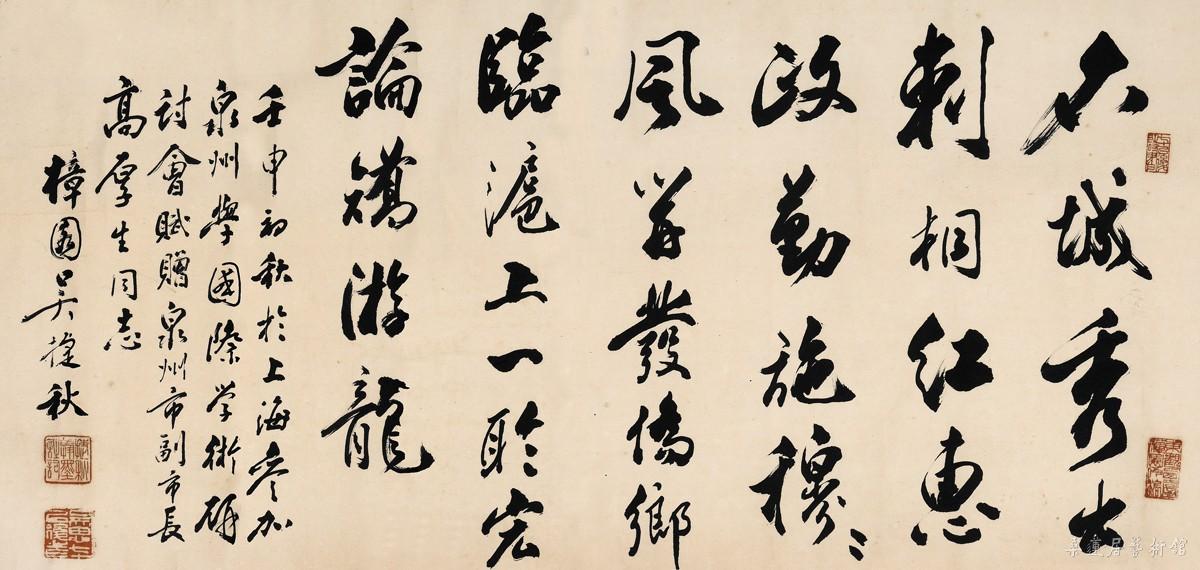 名城秀出
刺桐红惠
政勤施穆〻
風開發僑鄉
臨滬上一聆宏
論矯游龍
壬申初秋於上海參加
泉州學國際学術研
討會賦贈泉州市副市長
高厚生同志
樟園吴捷秋
桑蓮居藝術館